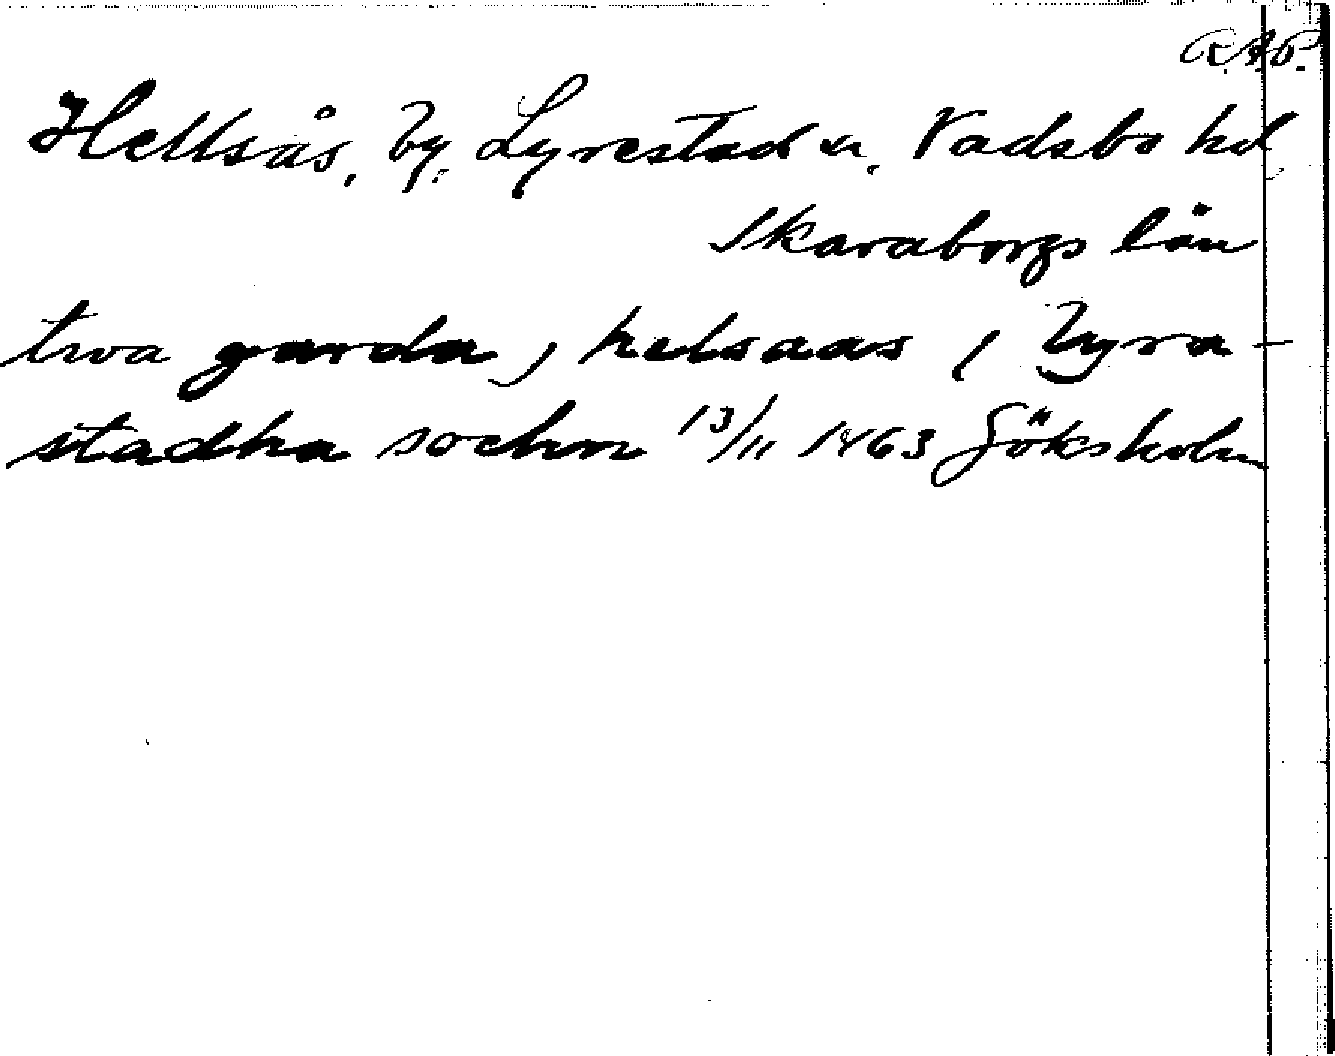 R.A.P.
Hellsås, by, Lyrestad sn, Vadsbo hd
Skaraborgs län
twa garda j helsaas j lyra-
stadha sochn 13/11 1463 Göksholm